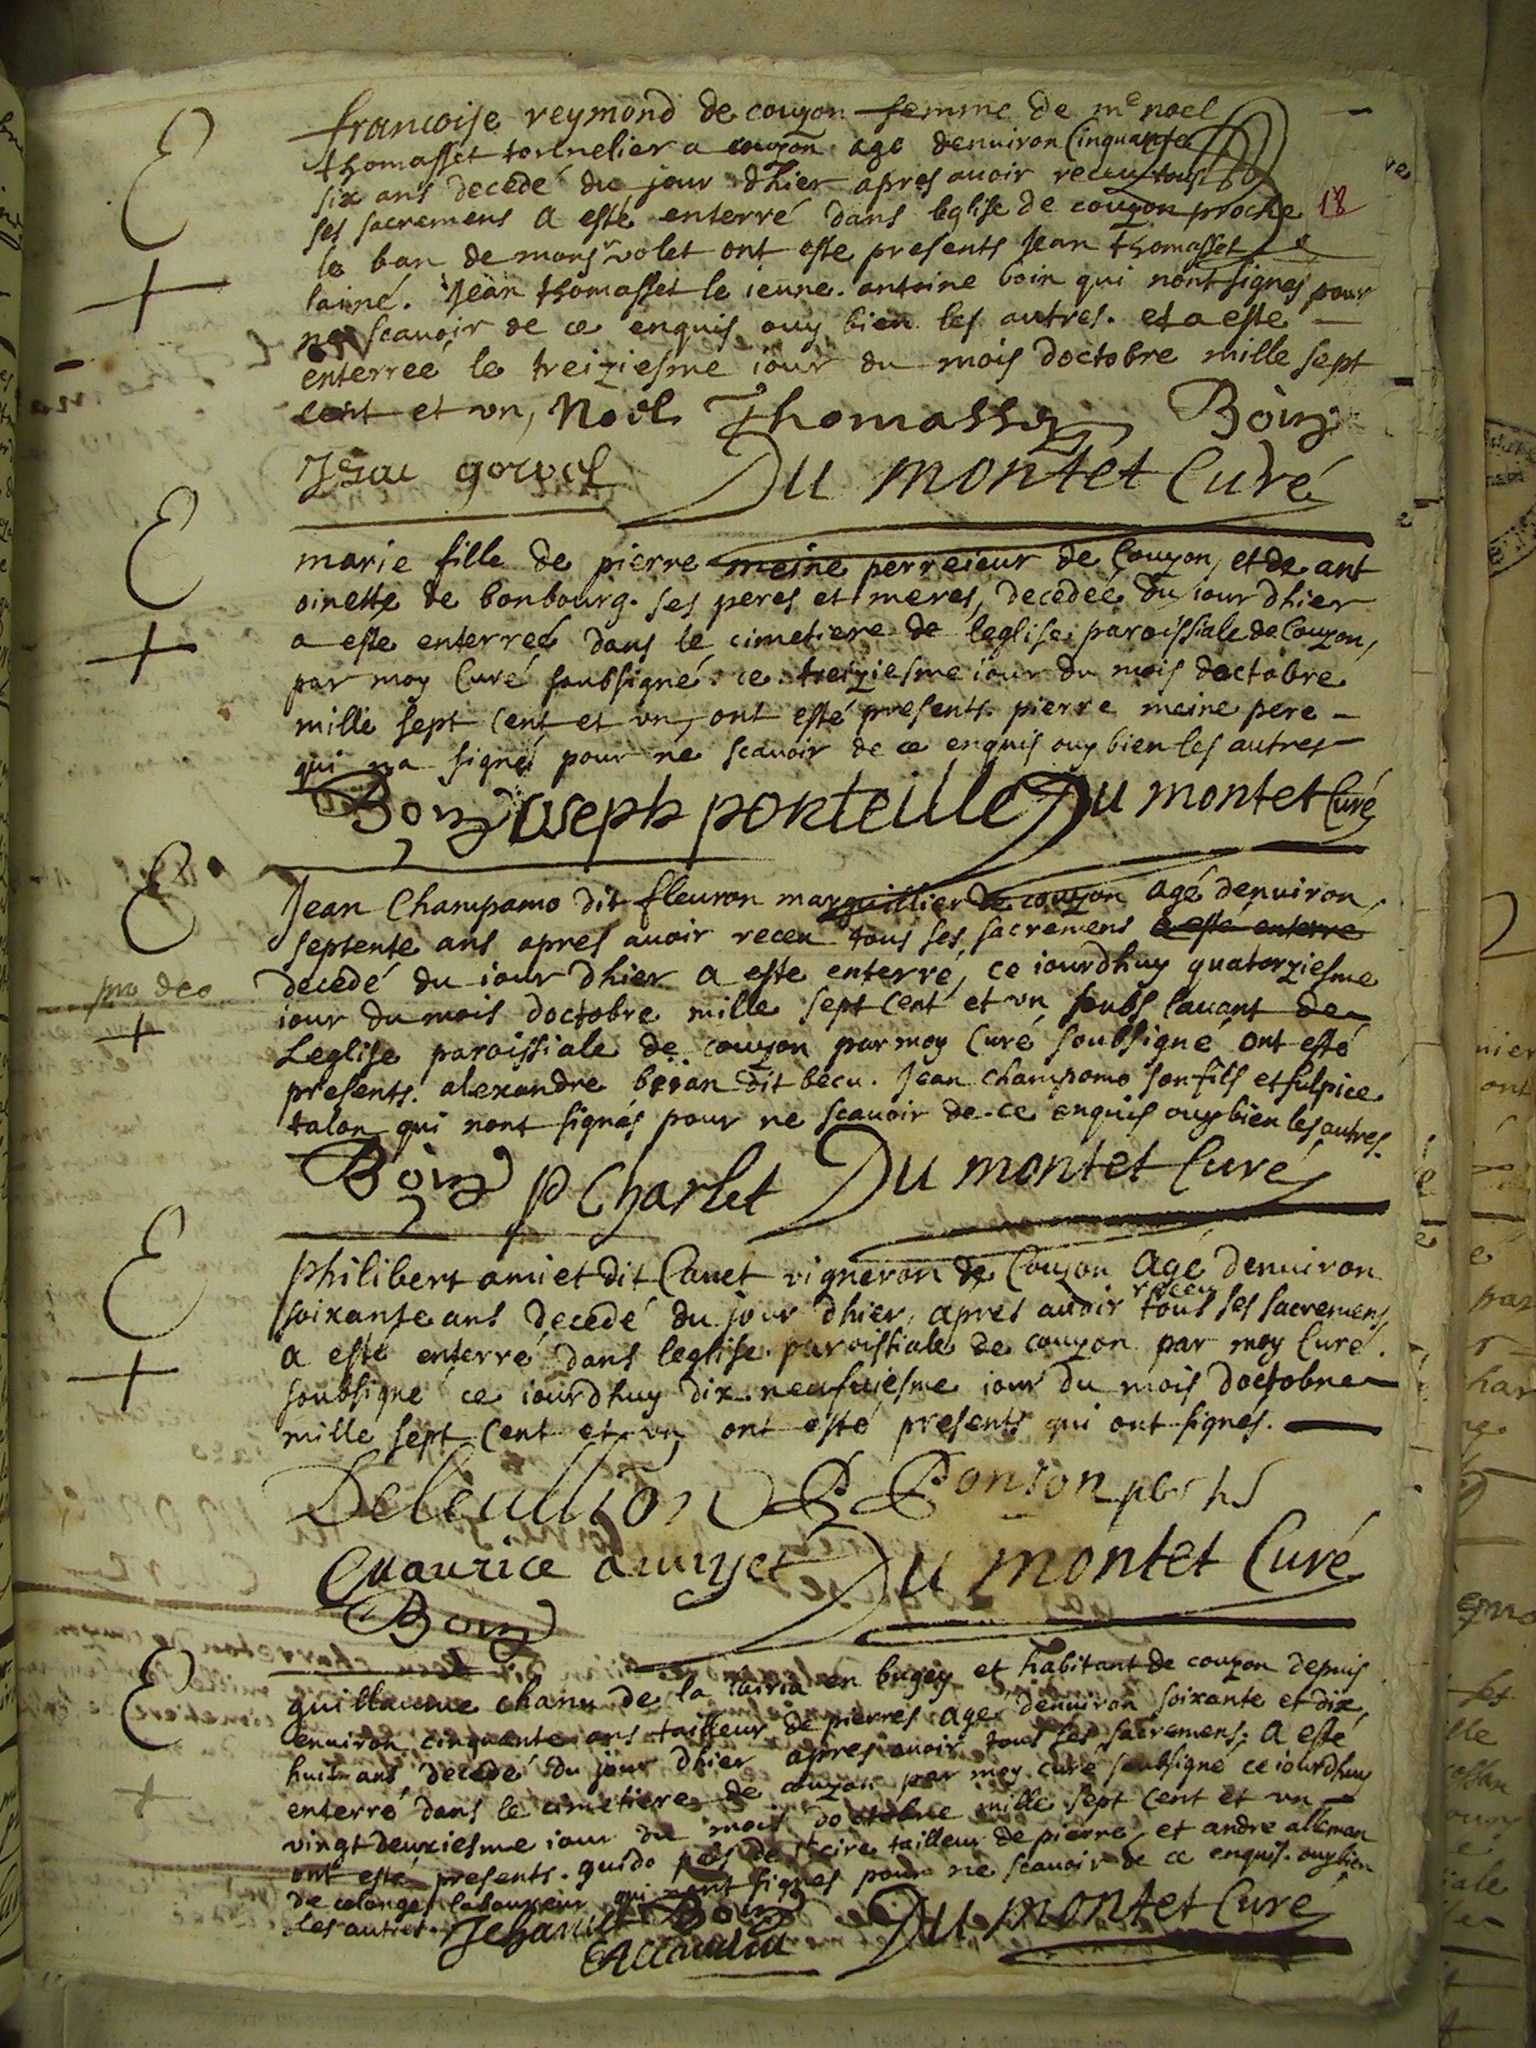 E
francoise reymond de couzon femme de me noel
thomasset tornelier a couzon age denuiron Cinquante
six ans decedé du jour dhier apres auoir receu tous
ses sacremens a esté enterré dans leglise de couzon proche 18
le ban de monsr volet ont este presents Jean thomasset
lainé. Jean thomasset le ieune. antoine boin qui nont signes pour
ne scauoir de ce enquis ouy bien les autres. et a este
enterreé le treiziesme iour du mois doctobre mille sept
cent et vn, Noel Thomasset Boin
Isac Du montet Curé
E
marie fille de pierre meine perreieur de Couzon, et de ant
oinette de bonbourg. ses peres et meres, decedeé du iour dhier
a este enterreé dans le cimetiere de leglise paroissiale de Couzon,
par moy Curé soubsigné. ce treiziesme iour du mois doctobre
mille sept Cent et vn, ont esté presents. pierre meine pere
qui na signé pour ne scauoir de ce enquis ouy bien les autres
Boin Joseph ponteille Du montet Curé
E
Jean Champamo dit fleuron marguillier de couzon agé denuiron
septente ans apres auoir receu tous ses sacremens a esté enterre
decedé du iour dhier a este enterré, ce iourdhuy quatorziesme
pro deo
iour du mois doctobre mille sept Cent et vn soubs lauant de
Leglise paroissiale de couzon par moy Curé soubsigné ont esté
presents. alexandre dit becu. Jean champomo son fils et sulpice
talon qui nont signés pour ne scauoir de ce enquis ouy bien les autres.
Boin P Charlet Du montet Curé
E
Philibert amiet dit Cauet vigneron de Couzon Agé denuiron
receu
soixante ans decedé du jour dhier, apres auoir tous ses sacremens
a esté enterré dans leglise paroissiale de couzon par moy Curé.
soubsigné ce iourdhuy dix neufuiesme iour du mois doctobre
mille sept Cent et vn ont esté presents qui ont signés.
Ponson
Maurice amyet Du montet Curé
Boin
E
guillaume chanu de la en bugey et habitant de couzon depuis
enuiron cinquante ans tailleur de pierres agé denuiron soixante et dix
huit ans decedé du jour dhier apres auoir tous ses sacremens. a esté
enterré dans le cimetiere de couzon par moy curé soubsigné ce iourdhuy
vingt deuxiesme iour du mois doctobre mille sept Cent et vn
ont esté presents. tailleur de pierre, et andre alleman
de colonges laboureur qui nont signes pour ne scauoir de ce enquis. ouy bien
les autres. Boin Du montet Curé